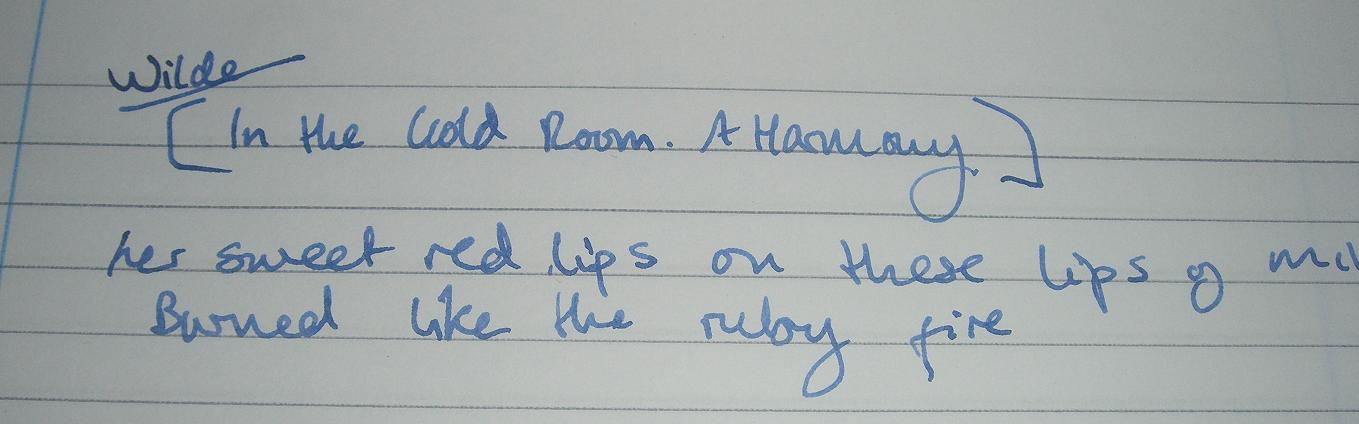 Wilde
[In the Gold Room. A Harmony]
her sweet red lips on these lips of
Burned like the ruby fire